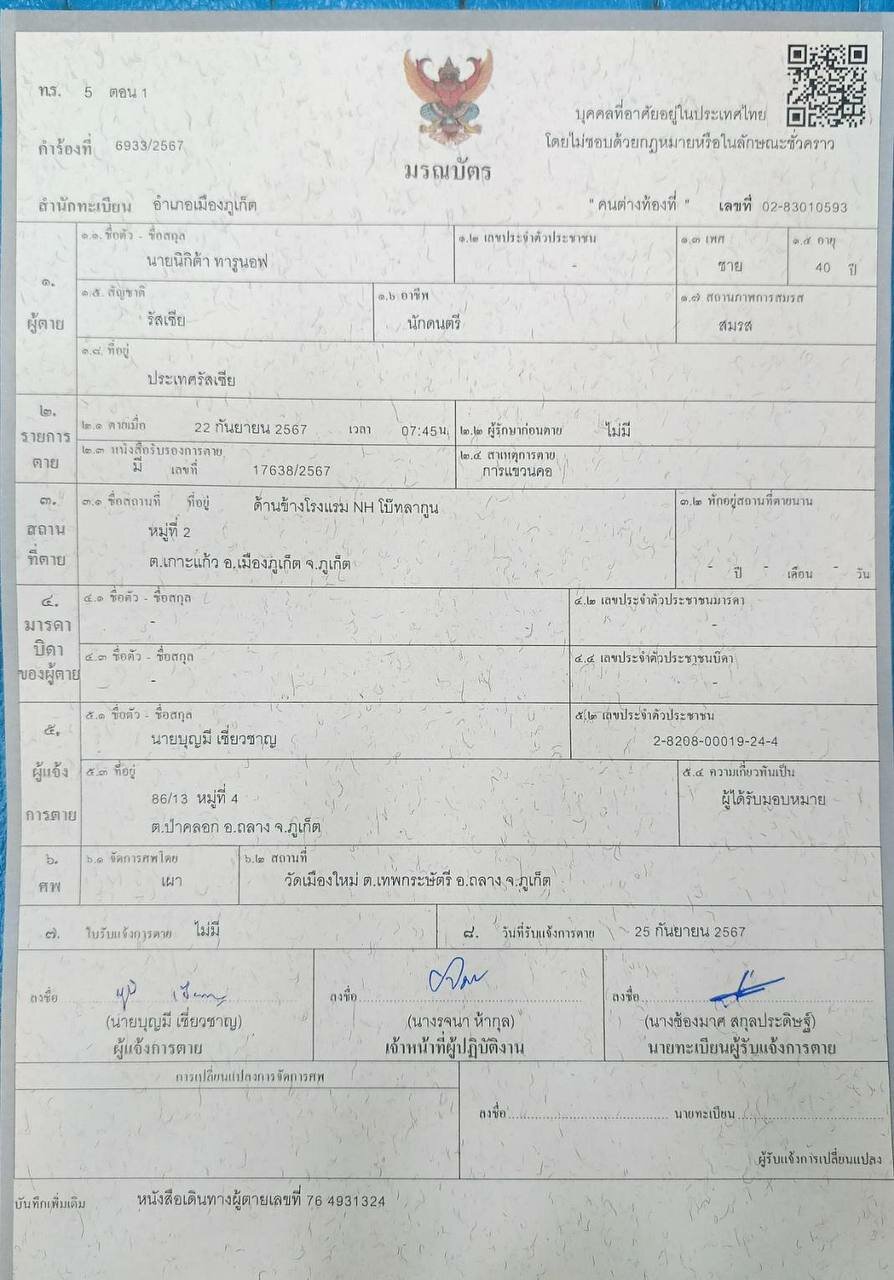 ท.ร. 5 ตอน 1
บุคคลที่อาศัยอยู่ในประเทศไทย
โดยไม่ชอบด้วยกฎหมายหรือในลักษณะชั่วคราว
คำร้องที่ 6933/2567
มรณบัตร
สำนักทะเบียน อำเภอเมืองภูเก็ต " คนต่างท้องที่ " เลขที่ 02-83010593
๑. ผู้ตาย
๑.๑. ชื่อตัว - ชื่อสกุล ๑.๒ เลขประจำตัวประชาชน ๑.๓ เพศ ๑.๔ อายุ
นายนิกิต้า ทารูนอฟ - ชาย 40 ปี
๑.๕. สัญชาติ ๑.๖ อาชีพ ๑.๗ สถานภาพการสมรส
รัสเซีย นักดนตรี สมรส
๑.๘. ที่อยู่
ประเทศรัสเซีย
๒. รายการตาย
๒.๑ ตายเมื่อ 22 กันยายน 2567 เวลา 07:45น. ๒.๒ ผู้รักษาก่อนตาย ไม่มี
๒.๓ หนังสือรับรองการตาย ๒.๔ สาเหตุการตาย
มี เลขที่ 17638/2567 การแขวนคอ
๓. สถานที่ตาย
๓.๑ ชื่อสถานที่ ที่อยู่ ด้านข้างโรงแรม NH โบ๊ทลากูน ๓.๒ พักอยู่สถานที่ตายนาน
หมู่ที่ 2
ต.เกาะแก้ว อ.เมืองภูเก็ต จ.ภูเก็ต - ปี - เดือน - วัน
๔. มารดา บิดา ของผู้ตาย
๔.๑ ชื่อตัว - ชื่อสกุล ๔.๒ เลขประจำตัวประชาชนมารดา
- -
๔.๓ ชื่อตัว - ชื่อสกุล ๔.๔ เลขประจำตัวประชาชนบิดา
- -
๕. ผู้แจ้งการตาย
๕.๑ ชื่อตัว - ชื่อสกุล ๕.๒ เลขประจำตัวประชาชน
นายบุญมี เชี่ยวชาญ 2-8208-00019-24-4
๕.๓ ที่อยู่ ๕.๔ ความเกี่ยวพันเป็น
86/13 หมู่ที่ 4 ผู้ได้รับมอบหมาย
ต.ป่าคลอก อ.ถลาง จ.ภูเก็ต
๖. ศพ
๖.๑ จัดการศพโดย ๖.๒ สถานที่
เผา วัดเมืองใหม่ ต.เทพกระษัตรี อ.ถลาง จ.ภูเก็ต
๗. ใบรับแจ้งการตาย ไม่มี ๘. วันที่รับแจ้งการตาย 25 กันยายน 2567
ลงชื่อ ลงชื่อ ลงชื่อ
(นายบุญมี เชี่ยวชาญ) (นางรจนา ห้ากุล) (นางช้องมาศ สกุลประดิษฐ์)
ผู้แจ้งการตาย เจ้าหน้าที่ผู้ปฏิบัติงาน นายทะเบียนผู้รับแจ้งการตาย
การเปลี่ยนแปลงการจัดการศพ
ลงชื่อ นายทะเบียน
ผู้รับแจ้งการเปลี่ยนแปลง
บันทึกเพิ่มเติม หนังสือเดินทางผู้ตายเลขที่ 76 4931324